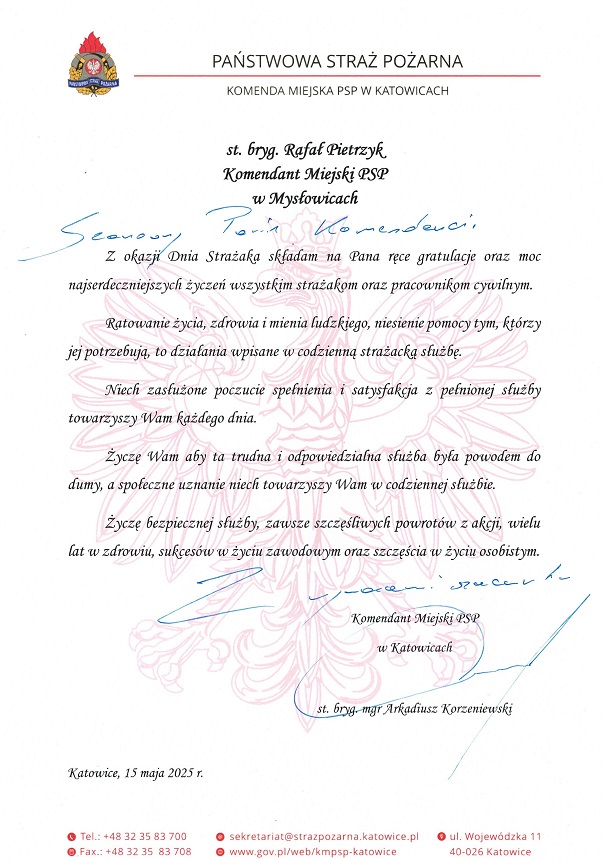 PAŃSTWOWA STRAŻ POŻARNA
KOMENDA MIEJSKA PSP W KATOWICACH
PAŃSTWOWA STRAŻ POŻARNA
st. bryg. Rafał Pietrzyk
Komendant Miejski PSP
w Mysłowicach
Szanowny Panie Komendancie
Z okazji Dnia Strażaka składam na Pana ręce gratulacje oraz moc
najserdeczniejszych życzeń wszystkim strażakom oraz pracownikom cywilnym.
Ratowanie życia, zdrowia i mienia ludzkiego, niesienie pomocy tym, którzy
jej potrzebują, to działania wpisane w codzienną strażacką służbę.
Niech zasłużone poczucie spełnienia i satysfakcja z pełnionej służby
towarzyszy Wam każdego dnia.
Życzę Wam aby ta trudna i odpowiedzialna służba była powodem do
dumy, a społeczne uznanie niech towarzyszy Wam w codziennej służbie.
Życzę bezpiecznej służby, zawsze szczęśliwych powrotów z akcji, wielu
lat w zdrowiu, sukcesów w życiu zawodowym oraz szczęścia w życiu osobistym.
Z wyrazami szacunku
Komendant Miejski PSP
w Katowicach
st. bryg. mgr Arkadiusz Korzeniewski
Katowice, 15 maja 2025 r.
Tel.: +48 32 35 83 700 sekretariat@strazpozarna.katowice.pl ul. Wojewódzka 11
Fax.: +48 32 35 83 708 www.gov.pl/web/kmpsp-katowice 40-026 Katowice